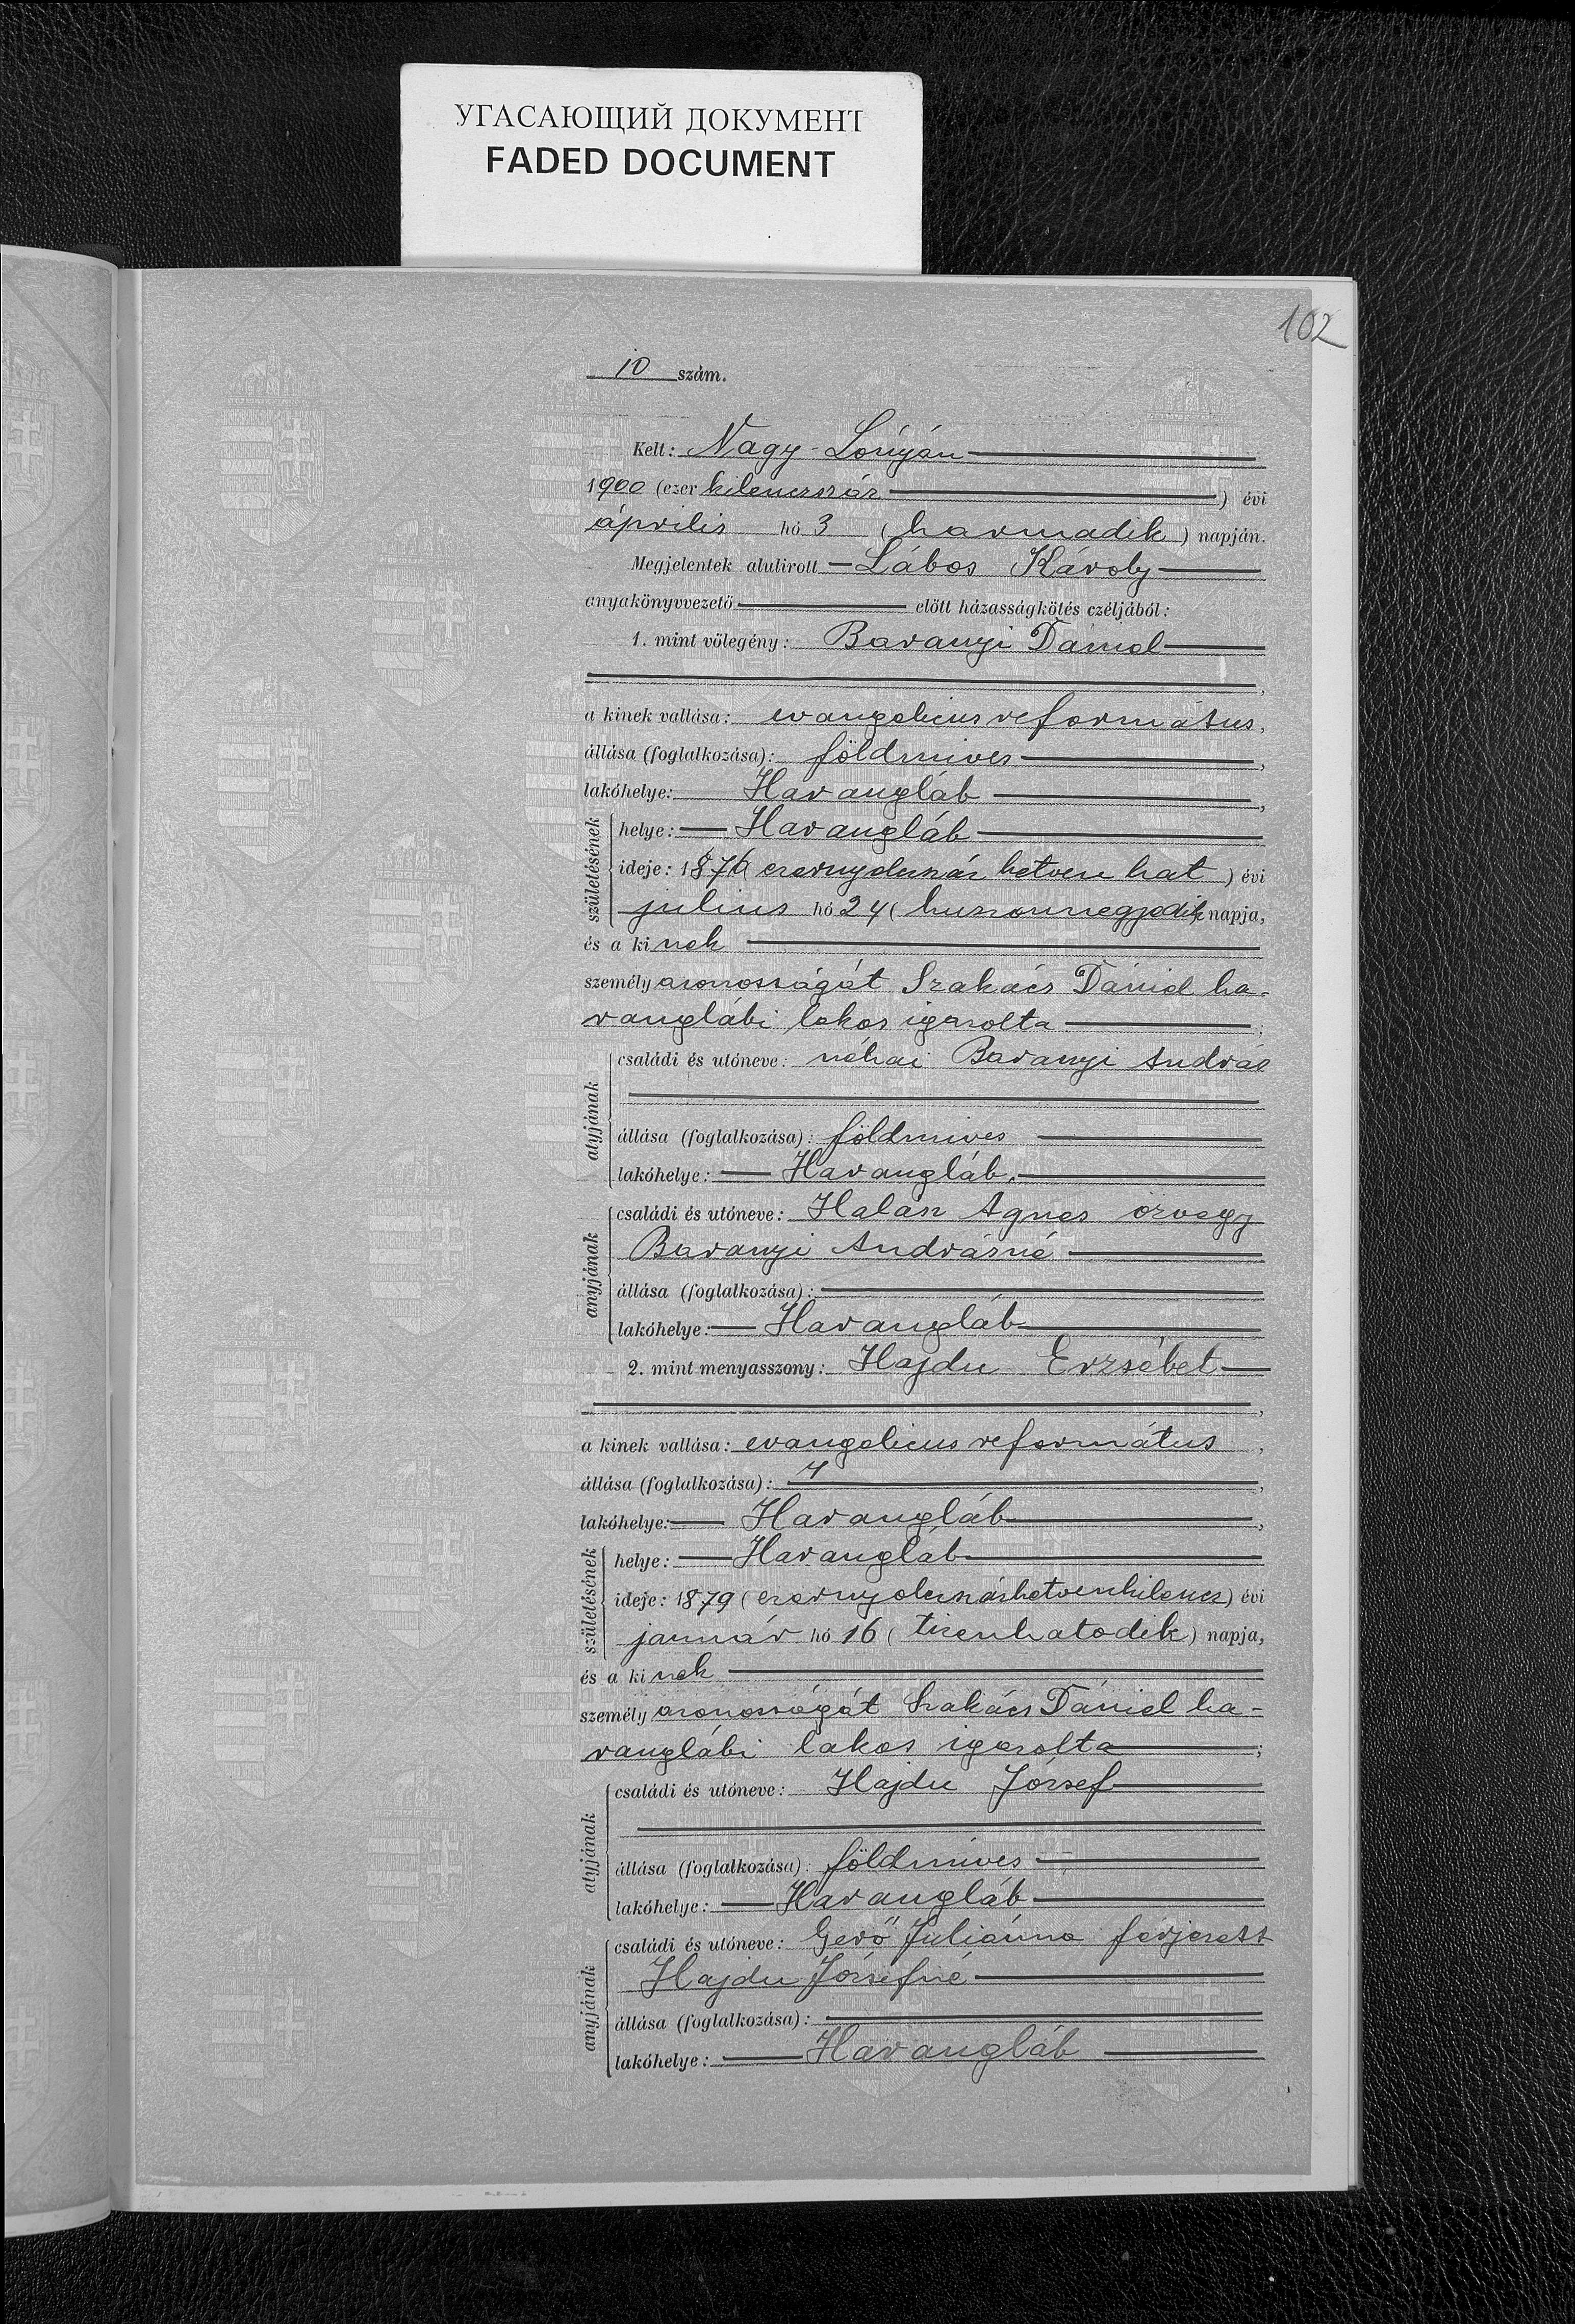 УГАСАЮЩИЙ ДОКУМЕНТ
FADED DOCUMENT
102
10 szám.
Kelt: Nagy-Lónyán
1900 (ezer kilenczszáz) évi
április hó 3 (harmadik) napján.
Megjelentek alulirott Lábos Károly
anyakönyvvezető előtt házasságkötés czéljából:
1. mint vőlegény: Baranyi Dániel
a kinek vallása: evangelicus református,
állása (foglalkozása): földmives,
lakóhelye: Harangláb,
születésének
helye: Harangláb
ideje: 1876 (ezernyolczszáz hetven hat) évi
julius hó 24 (huszonnegyedik) napja,
és a kinek
személyazonosságát Szakács Dániel ha-
ranglábi lakos igazolta;
atyjának
családi és utóneve: néhai Baranyi András
állása (foglalkozása): földmives
lakóhelye: Harangláb.
anyjának
családi és utóneve: Halász Agnes özvegy
Baranyi Andrásné
állása (foglalkozása):
lakóhelye: Harangláb
2. mint menyasszony: Hajdu Erzsébet,
a kinek vallása: evangelicus református,
állása (foglalkozása):,
lakóhelye: Harangláb,
születésének
helye: Harangláb
ideje: 1879 (ezernyolczszázhetvenkilencz) évi
január hó 16 (tizenhatodik) napja,
és a kinek
személyazonosságát Szakács Dániel ha-
ranglábi lakos igazolta;
atyjának
családi és utóneve: Hajdu József
állása (foglalkozása): földmives
lakóhelye: Harangláb
anyjának
családi és utóneve: Gerő Juliánna férjezett
Hajdu Józsefné
állása (foglalkozása):
lakóhelye: Harangláb